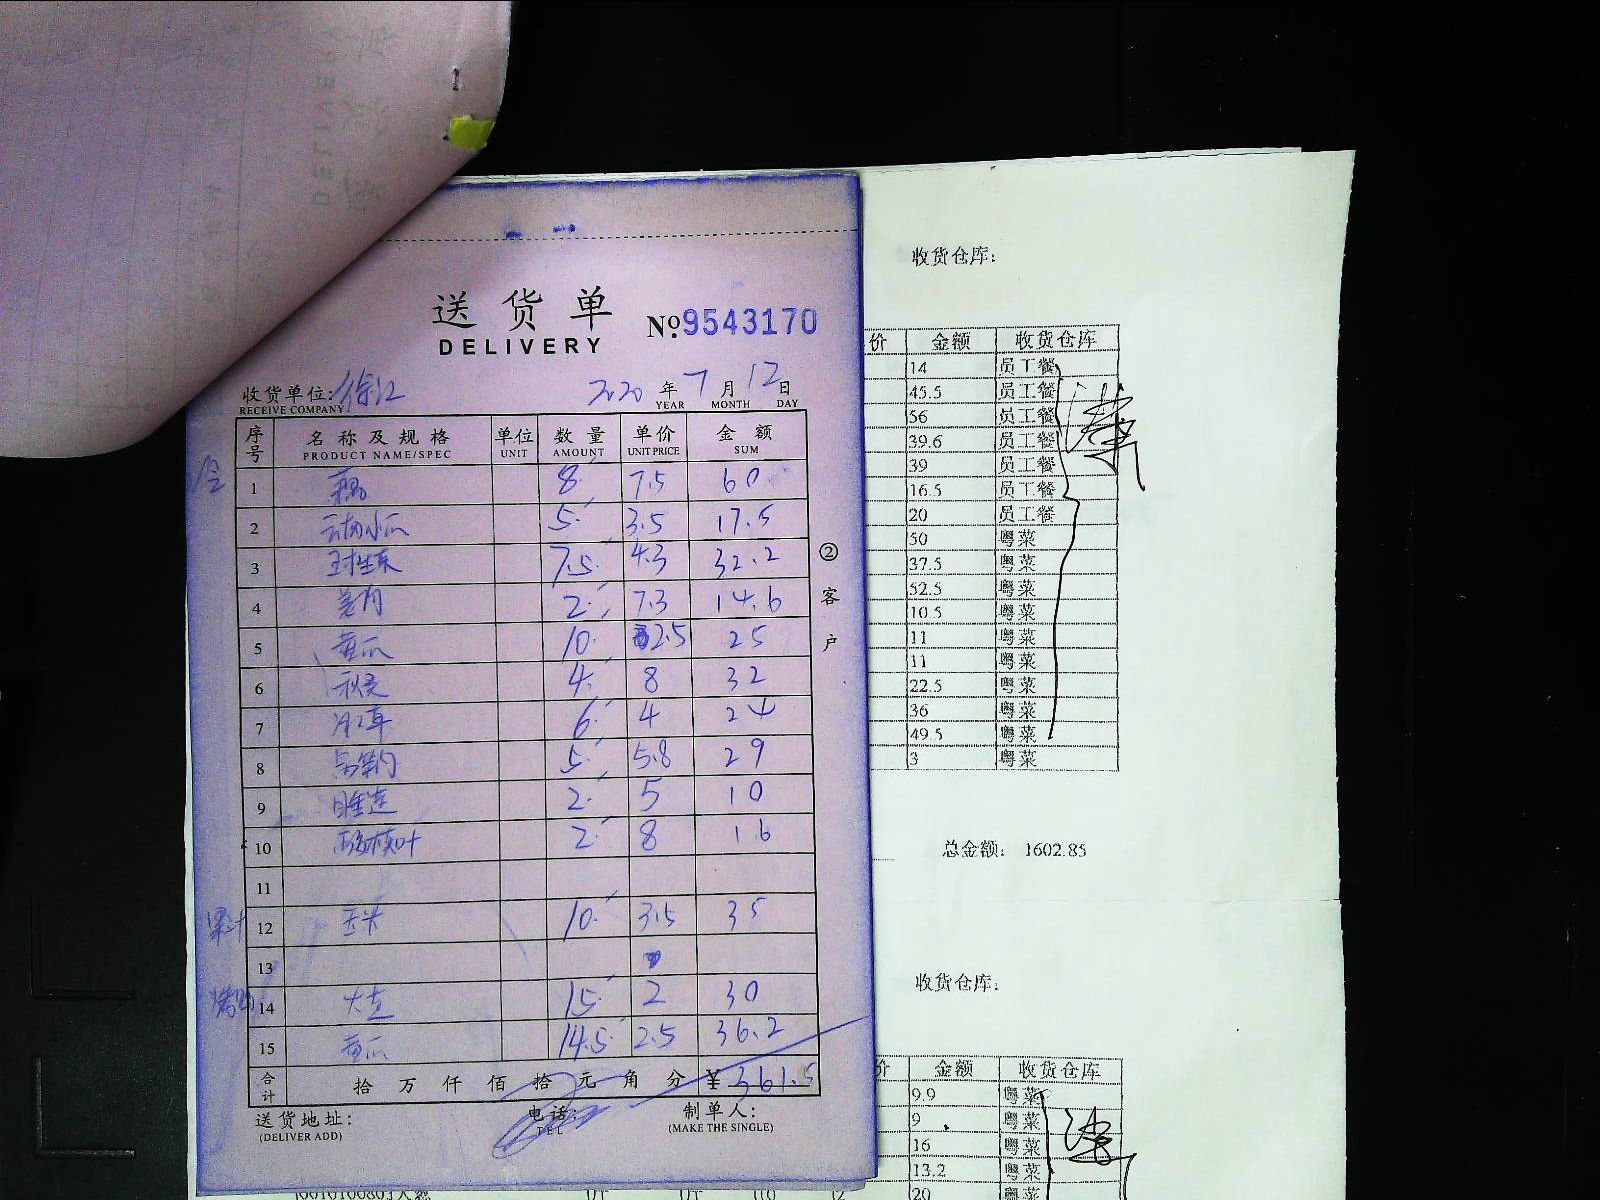 送货单
DELIVERY
№9543170
收货单位:徐江 2020年7月12日
RECEIVE COMPANY YEAR MONTH DAY
序号 名称及规格 单位 数量 单价 金额
PRODUCT NAME/SPEC UNIT AMOUNT UNIT PRICE SUM
1 8 7.5 60
2 5 3.5 17.5
3 球生菜 7.5 4.3 32.2
4 2 7.3 14.6
5 黄瓜 10 2.5 25
6 秋葵 4 8 32
7 6 4 24
8 5 5.8 29
9 睡莲 2 5 10
10 2 8 16
11
12 玉米 10 3.5 35
13
14 15 2 30
15 黄瓜 14.5 2.5 36.2
合计 拾万仟佰拾元角分 ¥361.5
送货地址: 电话: 制单人:
(DELIVER ADD) TEL (MAKE THE SINGLE)
②客户
收货仓库:
价 金额 收货仓库
14 员工餐
45.5 员工餐
56 员工餐
39.6 员工餐
39 员工餐
16.5 员工餐
20 员工餐
50 粤菜
37.5 粤菜
52.5 粤菜
10.5 粤菜
11 粤菜
11 粤菜
22.5 粤菜
36 粤菜
49.5 粤菜
3 粤菜
总金额: 1602.85
收货仓库:
价 金额 收货仓库
9.9 粤菜
9 粤菜
16 粤菜
13.2 粤菜
20 粤菜